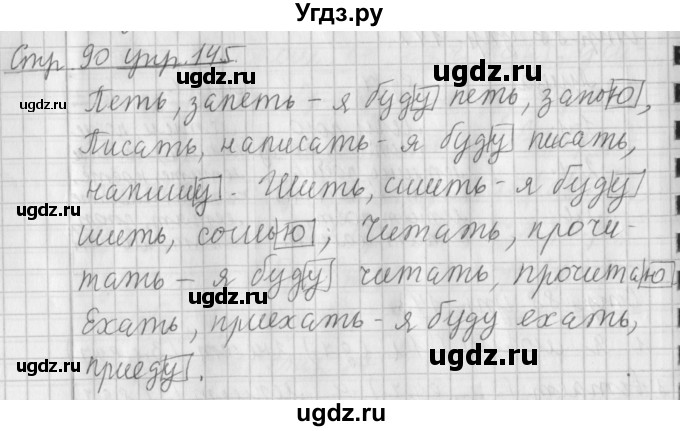 Угдз.ру
Стр 90 упр. 145.
Петь, запеть - я буду петь, запою,
Писать, написать - я буду писать,
напишу. Шить, сшить - я буду
шить, сошью; Читать, прочи-
тать - я буду читать, прочитаю
Ехать, приехать - я буду ехать,
приеду.
ugdz.ru
ugdz.ru
ugdz.ru
ugdz.ru
ugdz.ru
ugdz.ru
ugdz.ru
ugdz.ru
ugdz.ru